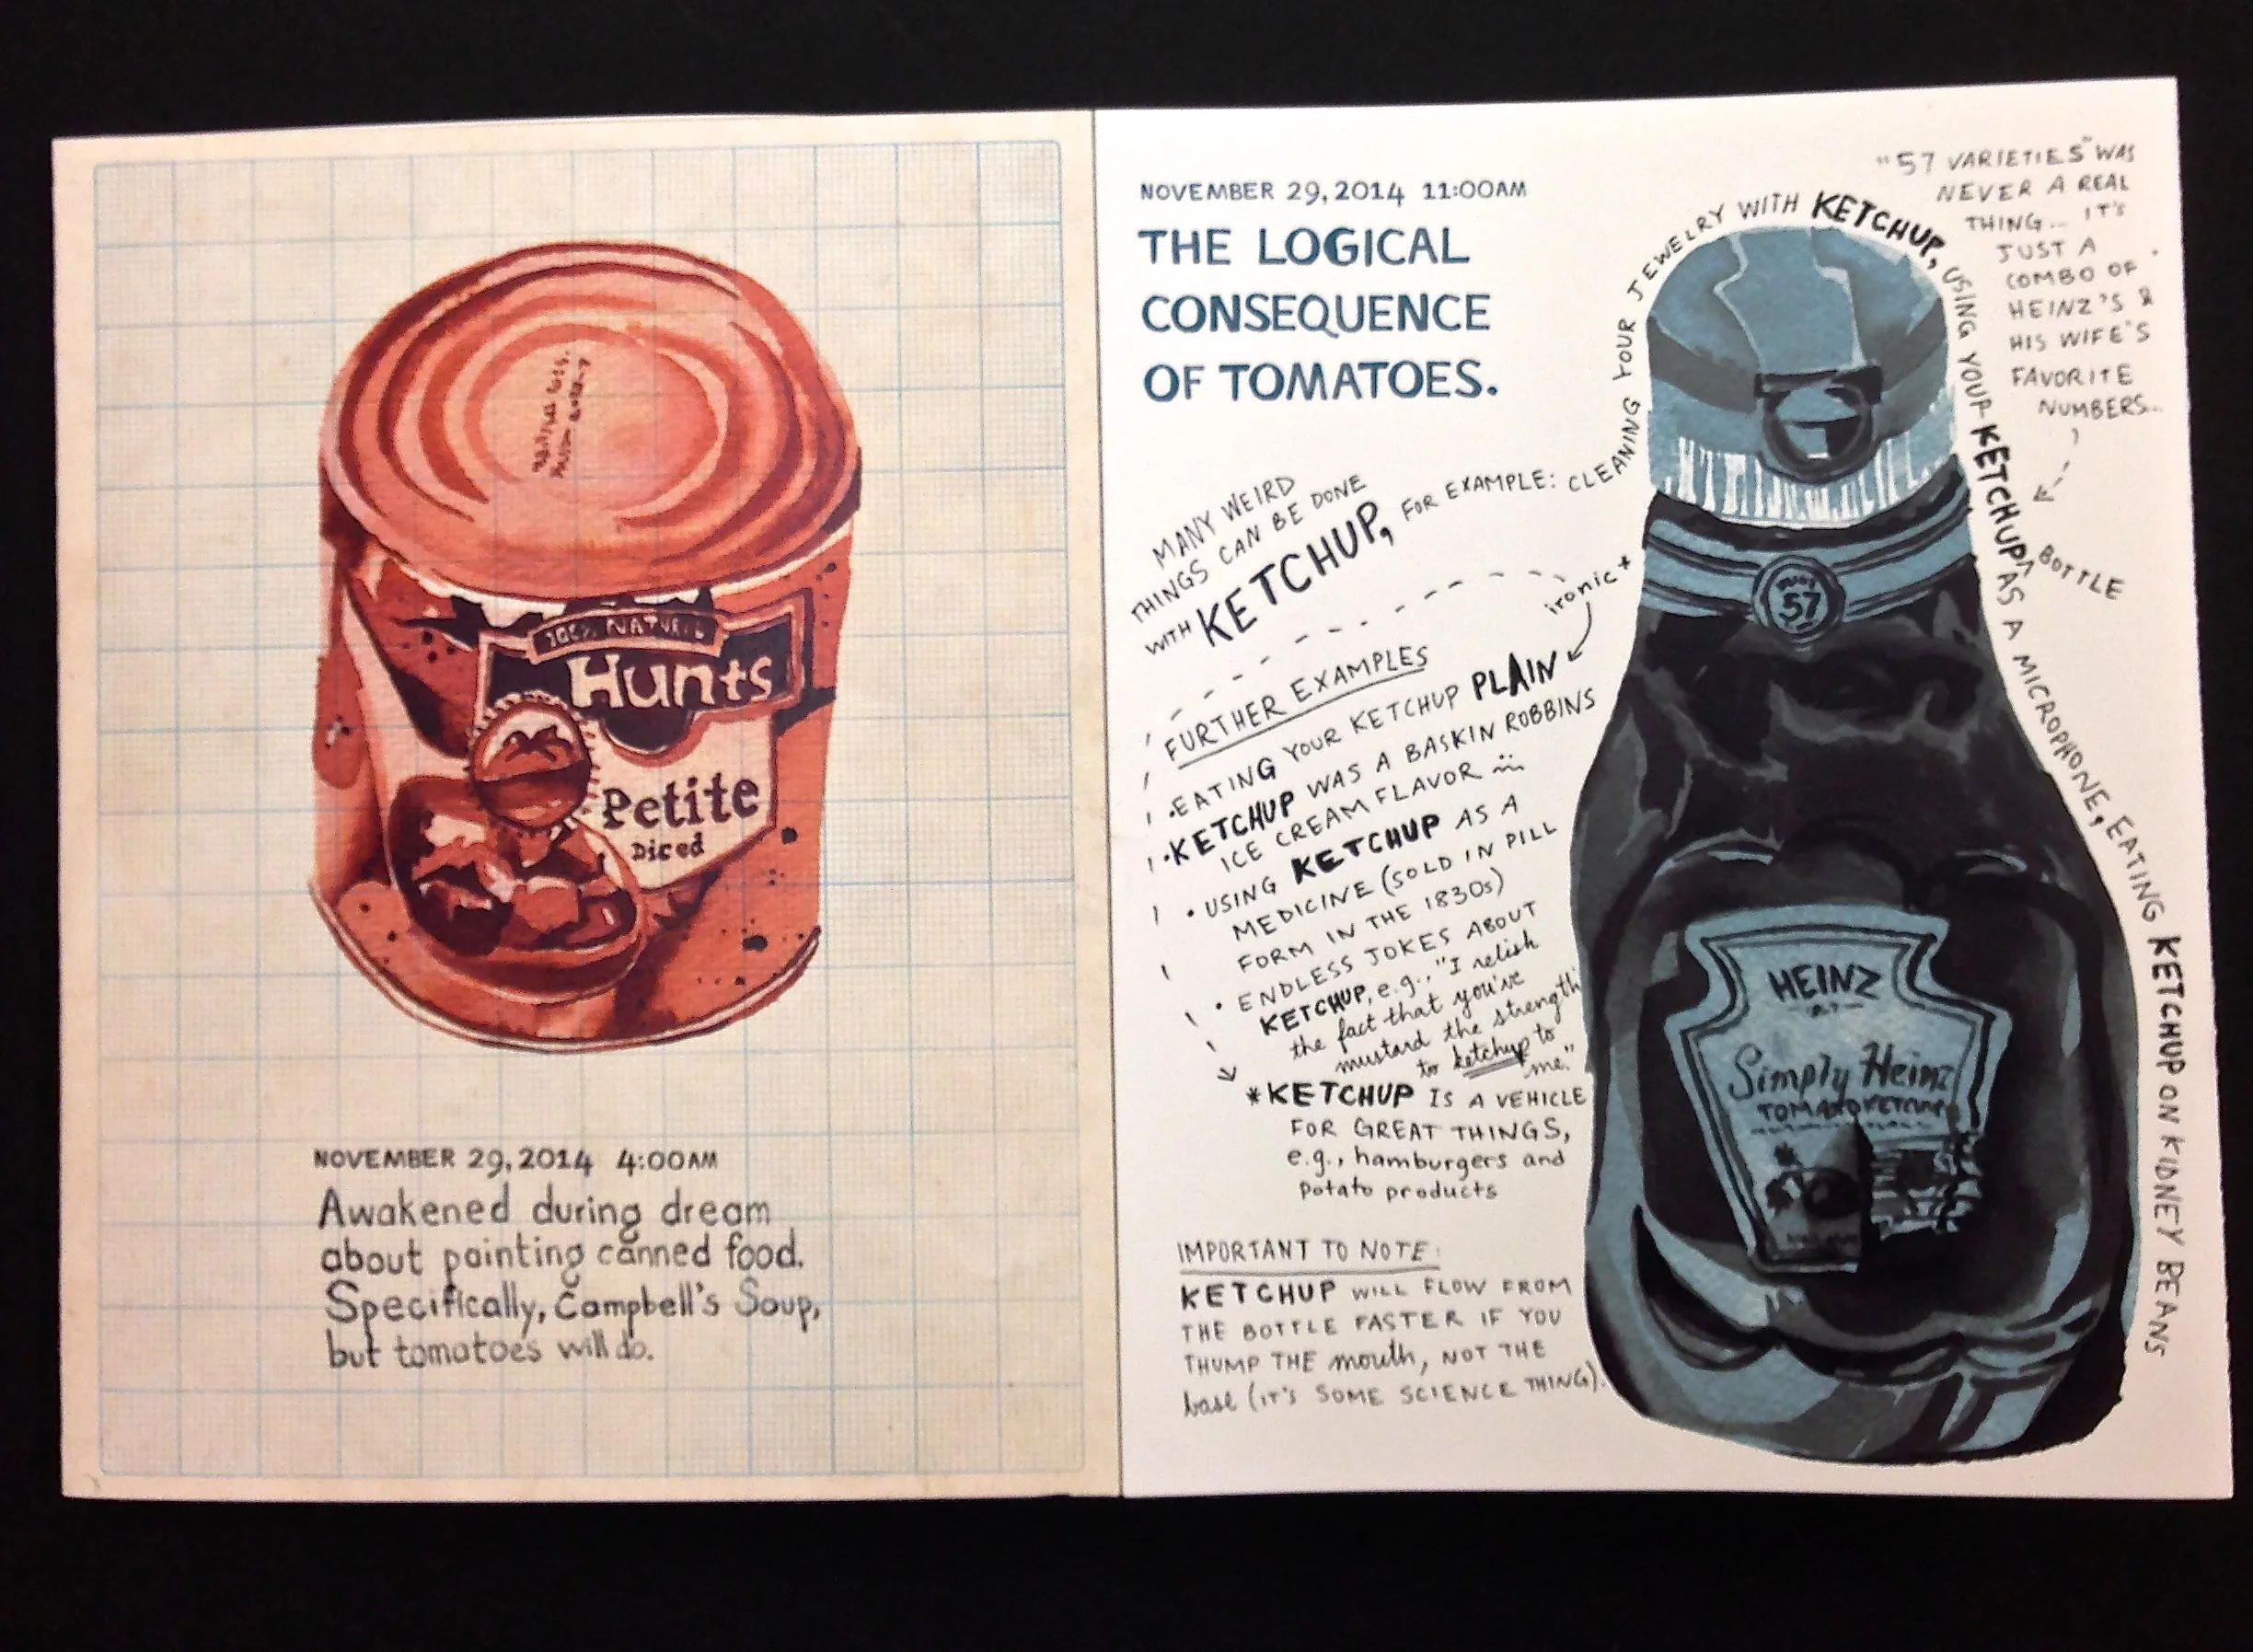 100% NATURAL
Hunts
Petite
Diced
NOVEMBER 29, 2014 4:00AM
Awakened during dream
about painting canned food.
Specifically, Campbell's Soup,
but tomatoes will do.
NOVEMBER 29, 2014 11:00AM
THE LOGICAL
CONSEQUENCE
OF TOMATOES.
MANY WEIRD
THINGS CAN BE DONE
WITH KETCHUP, FOR EXAMPLE: CLEANING YOUR JEWELRY WITH KETCHUP, USING YOUR KETCHUP^ AS A MICROPHONE, EATING KETCHUP ON KIDNEY BEANS
BOTTLE
"57 VARIETIES" WAS
NEVER A REAL
THING... IT'S
JUST A
COMBO OF
HEINZ'S &
HIS WIFE'S
FAVORITE
NUMBERS...
ironic*
FURTHER EXAMPLES
• EATING YOUR KETCHUP PLAIN
• KETCHUP WAS A BASKIN ROBBINS
ICE CREAM FLAVOR
• USING KETCHUP AS A
MEDICINE (SOLD IN PILL
FORM IN THE 1830s)
• ENDLESS JOKES ABOUT
KETCHUP, e.g., "I relish
the fact that you've
mustard the strength
to ketchup to
me."
*KETCHUP IS A VEHICLE
FOR GREAT THINGS,
e.g., hamburgers and
potato products
IMPORTANT TO NOTE:
KETCHUP WILL FLOW FROM
THE BOTTLE FASTER IF YOU
THUMP THE mouth, NOT THE
base (IT'S SOME SCIENCE THING).
57
HEINZ
Simply Heinz
TOMATO KETCHUP